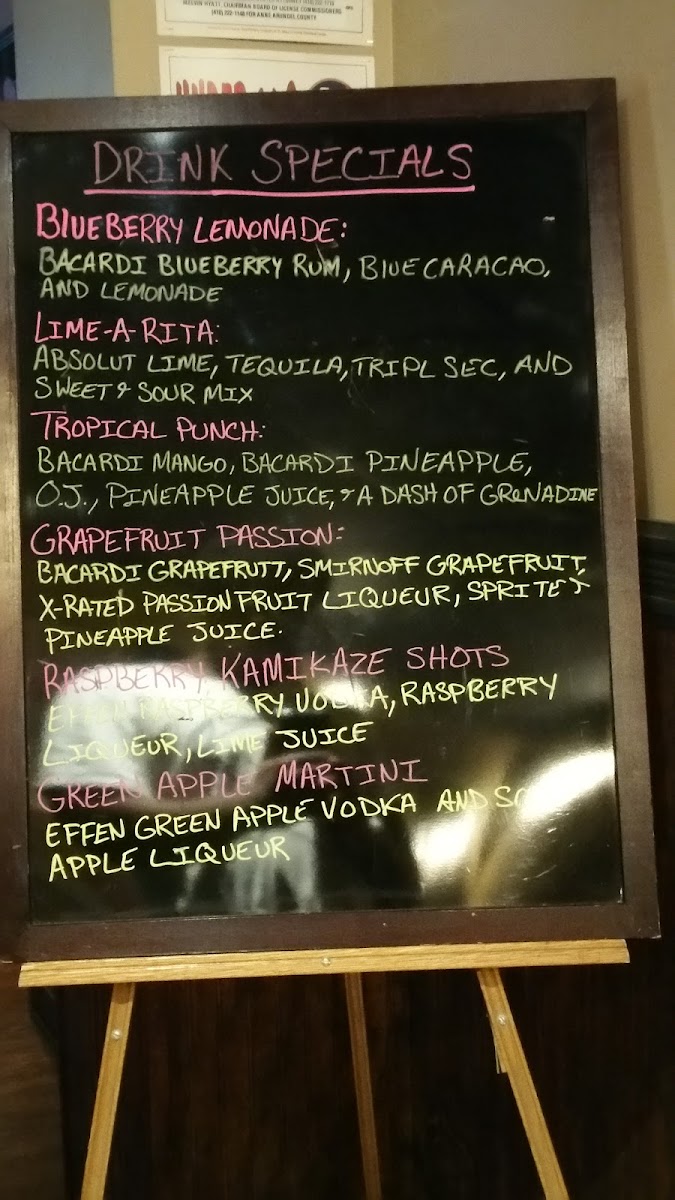 MELVIN HYATT, CHAIRMAN BOARD OF LICENSE COMMISSIONERS
(410) 222-1148 FOR ANNE ARUNDEL COUNTY
DRINK SPECIALS
BLUEBERRY LEMONADE:
BACARDI BLUEBERRY RUM, BLUE CARACAO,
AND LEMONADE
LIME-A-RITA:
ABSOLUT LIME, TEQUILA, TRIPL SEC, AND
SWEET & SOUR MIX
TROPICAL PUNCH:
BACARDI MANGO, BACARDI PINEAPPLE,
O.J., PINEAPPLE JUICE, & A DASH OF GRENADINE
GRAPEFRUIT PASSION:
BACARDI GRAPEFRUIT, SMIRNOFF GRAPEFRUIT,
X-RATED PASSION FRUIT LIQUEUR, SPRITE &
PINEAPPLE JUICE.
RASPBERRY KAMIKAZE SHOTS
EFFEN RASPBERRY VODKA, RASPBERRY
LIQUEUR, LIME JUICE
GREEN APPLE MARTINI
EFFEN GREEN APPLE VODKA AND
APPLE LIQUEUR